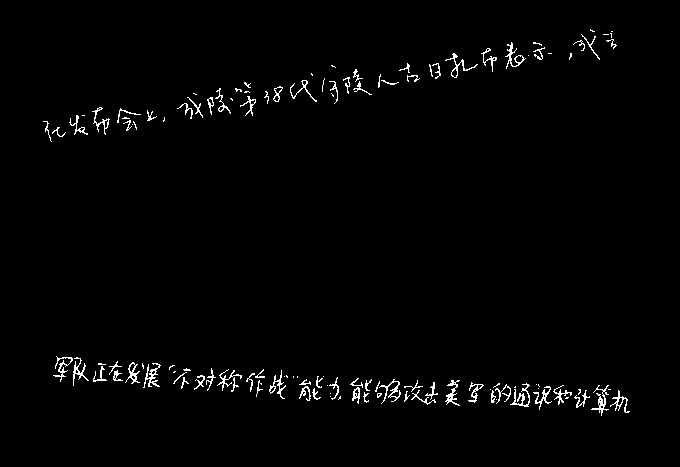 在发布会上，成陵第38代守陵人古日扎布表示，成吉
军队正在发展“不对称作战”能力，能够攻击美军的通讯和计算机